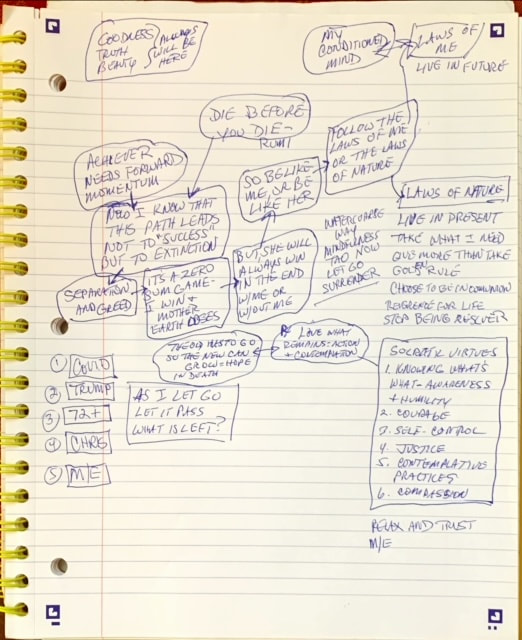 GOODNESS
TRUTH
BEAUTY
ALWAYS
WILL BE
HERE
MY
CONDITIONED
MIND
LAWS OF
ME
LIVE IN FUTURE
DIE BEFORE
YOU DIE -
RUMI
ACHIEVER
NEEDS FORWARD
MOMENTUM
NOW I KNOW THAT
THIS PATH LEADS
NOT TO "SUCCESS"
BUT TO EXTINCTION
SEPARATION
AND GREED
ITS A ZERO
SUM GAME -
I WIN &
MOTHER
EARTH LOSES
BUT, SHE WILL
ALWAYS WIN
IN THE END
W/ME OR
W/OUT ME
SO BE LIKE
ME, OR BE
LIKE HER
FOLLOW THE
LAWS OF ME
OR THE LAWS
OF NATURE
WAY
MINDFULNESS
TAO NOW
LET GO
SURRENDER
LAWS OF NATURE
LIVE IN PRESENT
TAKE WHAT I NEED
GIVE MORE THAN TAKE
GOLDEN RULE
CHOOSE TO BE IN COMMUNION
REVERENCE FOR LIFE
STOP BEING RESOLVER
THE OLD HAS TO GO
SO THE NEW CAN
GROW = HOPE
IN DEATH
LOVE WHAT
REMAINS = ACTION
+ CONTEMPLATION
SOCRATIC VIRTUES
1. KNOWING WHAT'S
WHAT - AWARENESS
+ HUMILITY
2. COURAGE
3. SELF-CONTROL
4. JUSTICE
5. CONTEMPLATIVE
PRACTICES
6. COMPASSION
RELAX AND TRUST
M/E
1 COVID
2 TRUMP
3 72+
4 CHRG
5 M/E
AS I LET GO
LET IT PASS
WHAT IS LEFT?